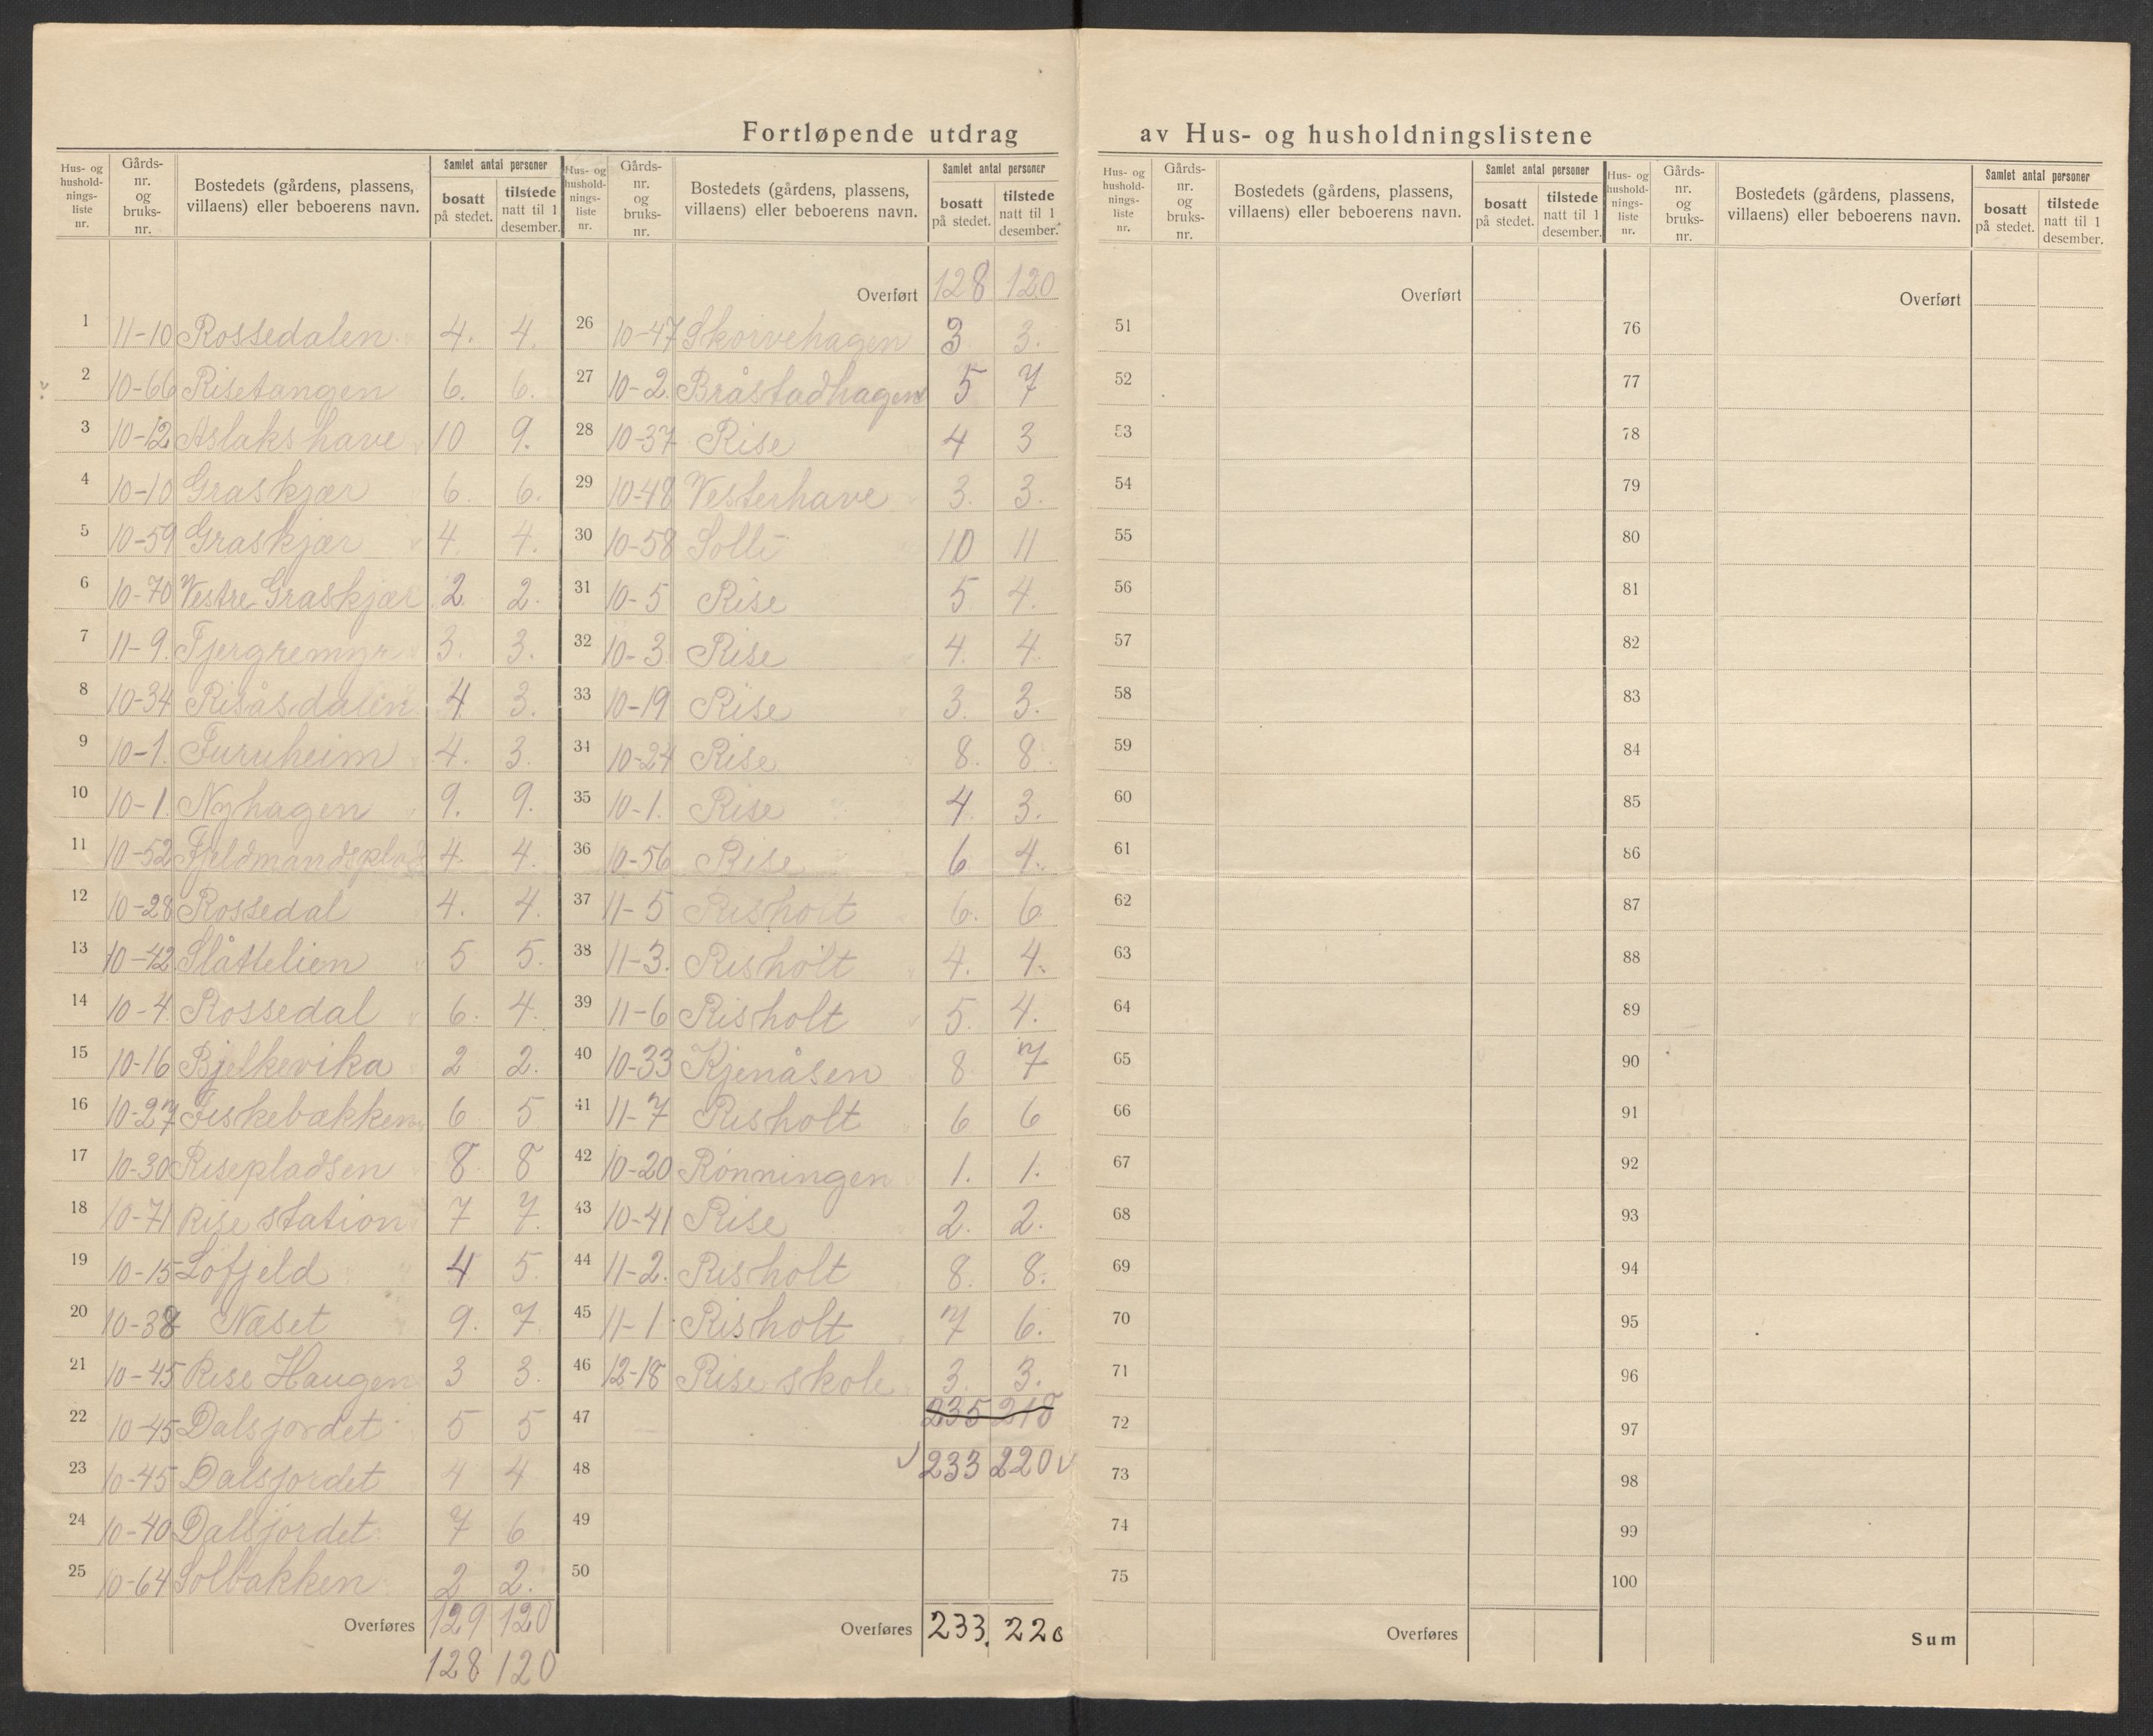 Fortløpende utdrag av Hus- og husholdningslistene
Hus- og hushold-nings-liste nr. Gårds-nr. og bruks-nr. Bostedets (gårdens, plassens, villaens) eller beboerens navn. Samlet antal personer bosatt på stedet. tilstede natt til 1 desember.
1 11-10 Rossedalen 4. 4.
2 10-66 Risetangen 6. 6.
3 10-12 Aslakshave 10 9.
4 10-10 Graskjær 6. 6.
5 10-59 Graskjær 4. 4.
6 10-70 Vestre Graskjær 2. 2.
7 11-9. Tjergremyr 3. 3.
8 10-34 Risåsdalen 4 3.
9 10-1. Furuheim 4. 3.
10 10-1. Nyhagen 9. 9.
11 10-52 Fjeldmandsplads 4. 4.
12 10-28 Rossedal 4. 4.
13 10-42 Slåttelien 5 5.
14 10-4. Rossedal 6. 4.
15 10-16 Bjelkevika 2 2.
16 10-27 Fiskebakken 6 5
17 10-30 Risepladsen 8. 8
18 10-71 Rise station 7 7.
19 10-15 Lofjeld 4 5.
20 10-38 Næset 9. 7
21 10-45 Rise Haugen 3 3.
22 10-45 Dalsjordet 5 5
23 10-45 Dalsjordet 4 4
24 10-40 Dalsjordet 7 6
25 10-64 Solbakken 2 2.
Overføres 129 120
128 120
Hus- og hushold-nings-liste nr. Gårds-nr. og bruks-nr. Bostedets (gårdens, plassens, villaens) eller beboerens navn. Samlet antal personer bosatt på stedet. tilstede natt til 1 desember.
Overført 128 120
26 10-47 Skorvehagen 3 3.
27 10-2. Bråstadhagen 5 7
28 10-37 Rise 4 3
29 10-48 Vesterhave 3. 3.
30 10-58 Solli 10 11
31 10-5 Rise 5 4.
32 10-3 Rise 4. 4.
33 10-19 Rise 3. 3.
34 10-24 Rise 8. 8.
35 10-1. Rise 4. 3.
36 10-56 Rise 6 4.
37 11-5 Risholt 6. 6
38 11-3. Risholt 4. 4.
39 11-6 Risholt 5. 4.
40 10-33 Kjenåsen 8 7
41 11-7 Risholt 6 6
42 10-20 Rønningen 1. 1.
43 10-41 Rise 2. 2.
44 11-2. Risholt 8. 8.
45 11-1. Risholt 7 6.
46 12-18 Rise skole 3. 3.
47 235 218
48 233 220
49
50
Overføres 233. 220
Hus- og hushold-nings-liste nr. Gårds-nr. og bruks-nr. Bostedets (gårdens, plassens, villaens) eller beboerens navn. Samlet antal personer bosatt på stedet. tilstede natt til 1 desember.
Overført
51
52
53
54
55
56
57
58
59
60
61
62
63
64
65
66
67
68
69
70
71
72
73
74
75
Overføres
Hus- og hushold-nings-liste nr. Gårds-nr. og bruks-nr. Bostedets (gårdens, plassens, villaens) eller beboerens navn. Samlet antal personer bosatt på stedet. tilstede natt til 1 desember.
Overført
76
77
78
79
80
81
82
83
84
85
86
87
88
89
90
91
92
93
94
95
96
97
98
99
100
Sum